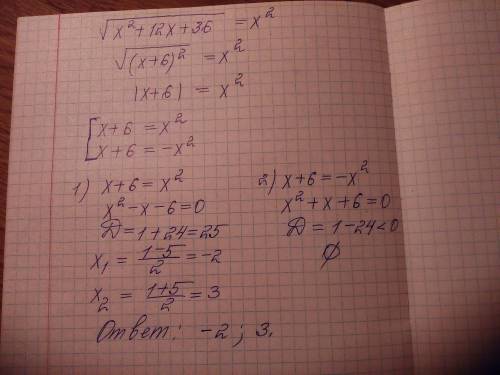 √(x²+12x+36) = x²
√((x+6)²) = x²
|x+6| = x²
[x+6 = x²
x+6 = -x²
1) x+6 = x²
x²-x-6=0
D=1+24=25
x₁ = (1-5)/2 = -2
x₂ = (1+5)/2 = 3
2) x+6=-x²
x²+x+6=0
D = 1-24<0
∅
Ответ: -2; 3.